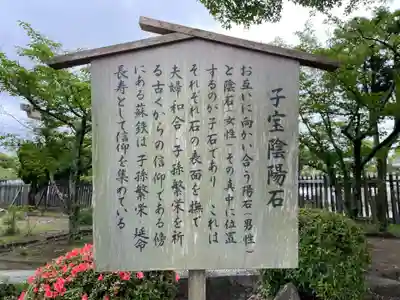 子宝陰陽石
お互いに向かい合う陽石(男性)
と陰石(女性)その真中に位置
するのが子石であり これは
それぞれ石の表面を撫で
夫婦和合 子孫繁栄を祈
る古くからの信仰である傍
にある蘇鉄は 子孫繁栄 延命
長寿として信仰を集めている